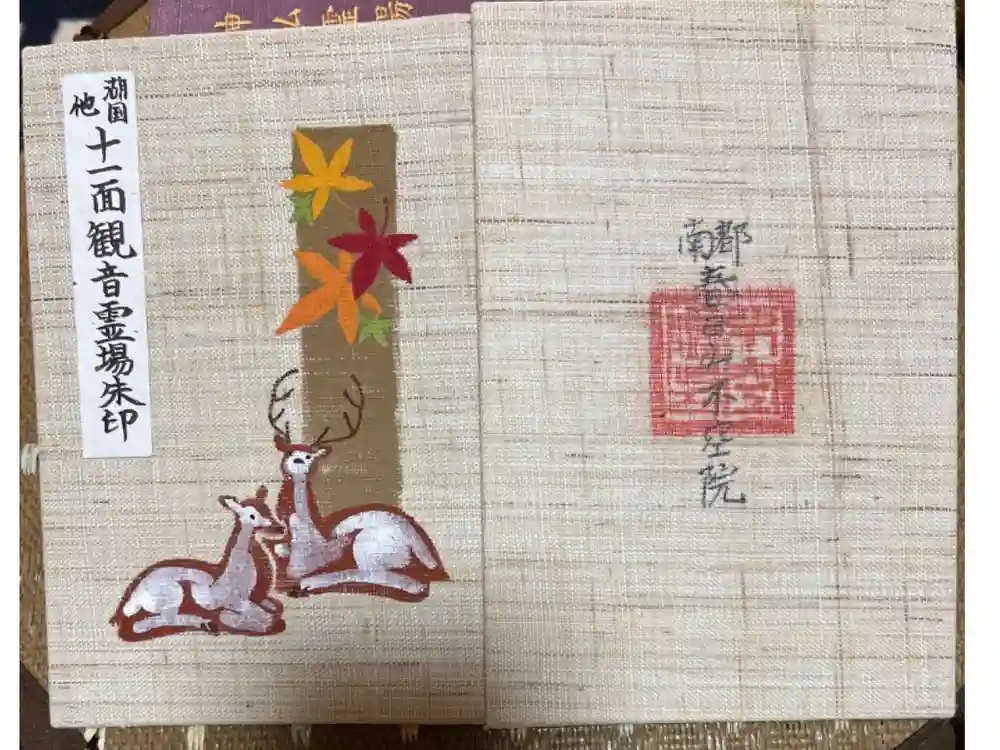 神仏霊場
湖国
他
十一面観音霊場朱印
南都
春日山不空院